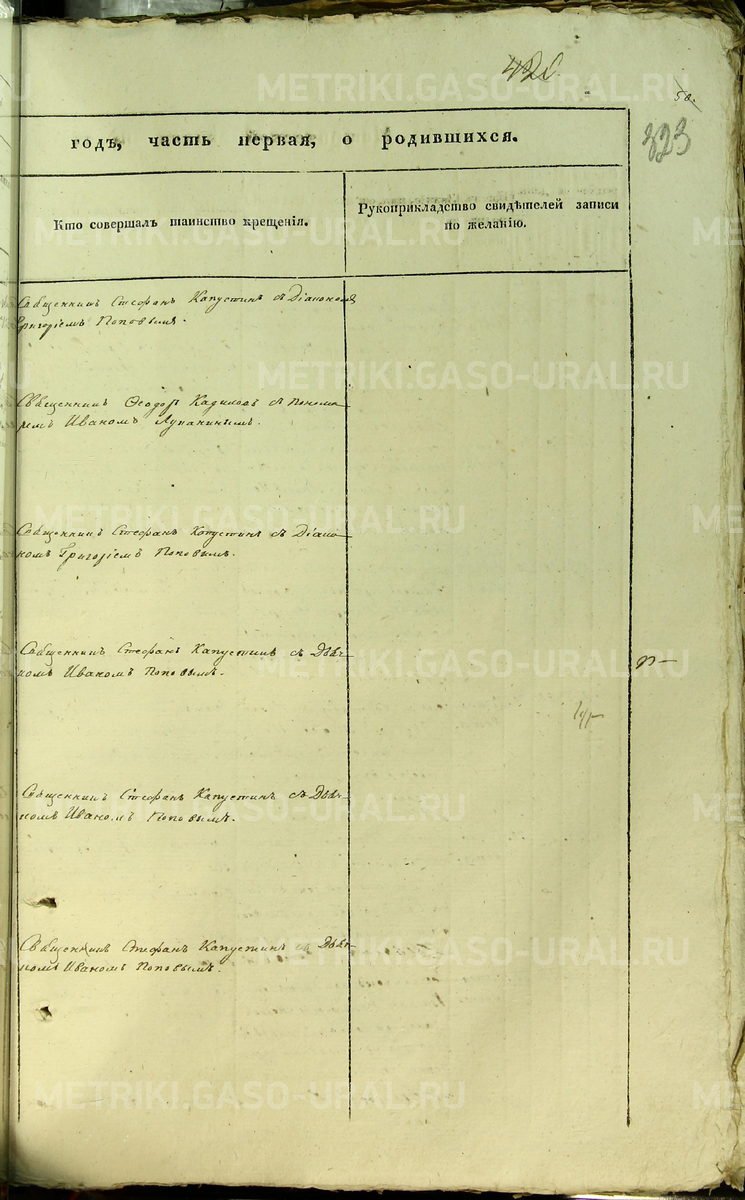 50.
323
годъ, часть первая, о родившихся.
Кто совершалъ таинство крещенія.
Рукоприкладство свидѣтелей записи
по желанію.
Священникъ Стефанъ Капустинъ съ Діакономъ
Григоріемъ Поповымъ.
Священникъ Ѳеодоръ съ Понома-
ремъ Иваномъ
Священникъ Стефанъ Капустинъ съ Діако-
номъ Григоріемъ Поповымъ.
Священникъ Стефанъ Капустинъ съ Дьяч-
комъ Иваномъ Поповымъ.
Священникъ Стефанъ Капустинъ съ Дьяч-
комъ Иваномъ Поповымъ.
Священникъ Стефанъ Капустинъ съ Дьяч-
комъ Иваномъ Поповымъ.
METRIKI.GASO-URAL.RU